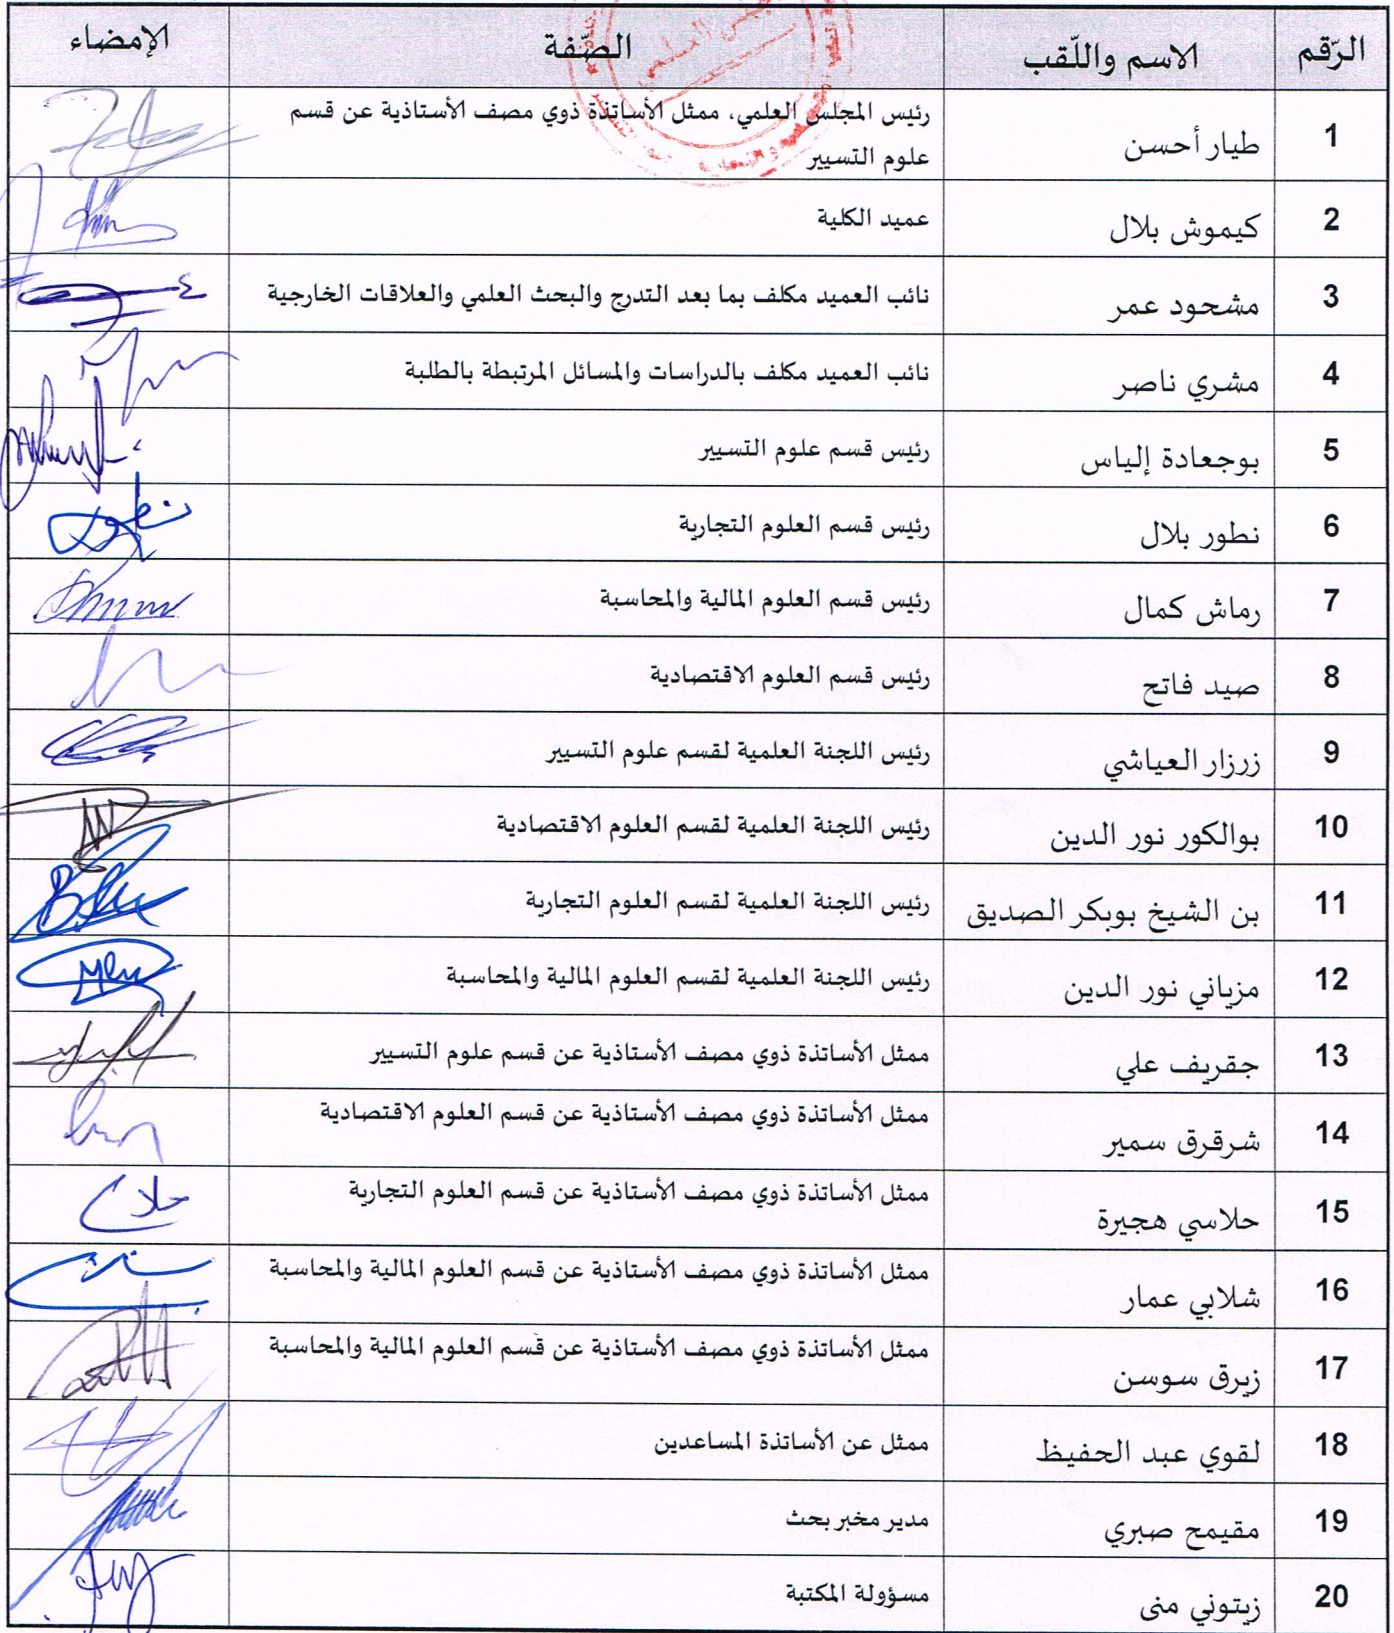 الرّقم الاسم واللّقب الصّفة الإمضاء
1 طيار أحسن رئيس المجلس العلمي، ممثل الأساتذة ذوي مصف الأستاذية عن قسم
علوم التسيير
2 كيموش بلال عميد الكلية
3 مشحود عمر نائب العميد مكلف بما بعد التدرج والبحث العلمي والعلاقات الخارجية
4 مشري ناصر نائب العميد مكلف بالدراسات والمسائل المرتبطة بالطلبة
5 بوجعادة إلياس رئيس قسم علوم التسيير
6 نطور بلال رئيس قسم العلوم التجارية
7 رماش كمال رئيس قسم العلوم المالية والمحاسبة
8 صيد فاتح رئيس قسم العلوم الاقتصادية
9 زرزار العياشي رئيس اللجنة العلمية لقسم علوم التسيير
10 بوالكور نور الدين رئيس اللجنة العلمية لقسم العلوم الاقتصادية
11 بن الشيخ بوبكر الصديق رئيس اللجنة العلمية لقسم العلوم التجارية
12 مزياني نور الدين رئيس اللجنة العلمية لقسم العلوم المالية والمحاسبة
13 جقريف علي ممثل الأساتذة ذوي مصف الأستاذية عن قسم علوم التسيير
14 شرقرق سمير ممثل الأساتذة ذوي مصف الأستاذية عن قسم العلوم الاقتصادية
15 حلاسي هجيرة ممثل الأساتذة ذوي مصف الأستاذية عن قسم العلوم التجارية
16 شلابي عمار ممثل الأساتذة ذوي مصف الأستاذية عن قسم العلوم المالية والمحاسبة
17 زيرق سوسن ممثل الأساتذة ذوي مصف الأستاذية عن قسم العلوم المالية والمحاسبة
18 لقوي عبد الحفيظ ممثل عن الأساتذة المساعدين
19 مقيمح صبري مدير مخبر بحث
20 زيتوني منى مسؤولة المكتبة